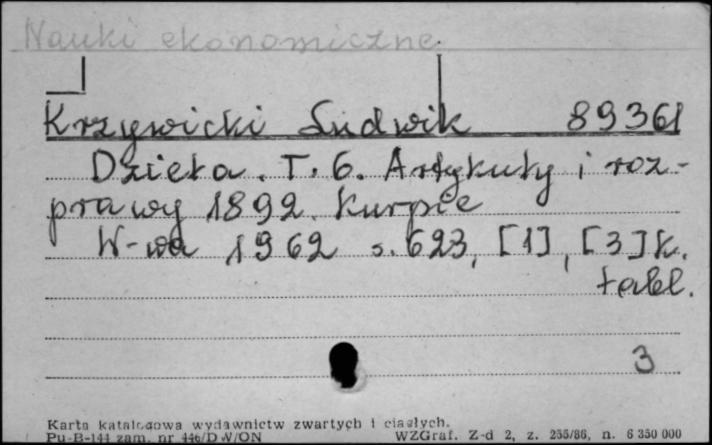 Nauki ekonomiczne
Krzywicki Ludwik 89361
Dzieła. T. 6. Artykuły i roz-
prawy 1892. Kurpie
W-wa 1962 s. 623, [1], [3] k.
tabl.
3
Karta katalogowa wydawnictw zwartych i ciągłych.
Pu-B-144 zam. nr 446/DW/ON WZGraf. Z-d 2, z. 255/86, n. 6 350 000